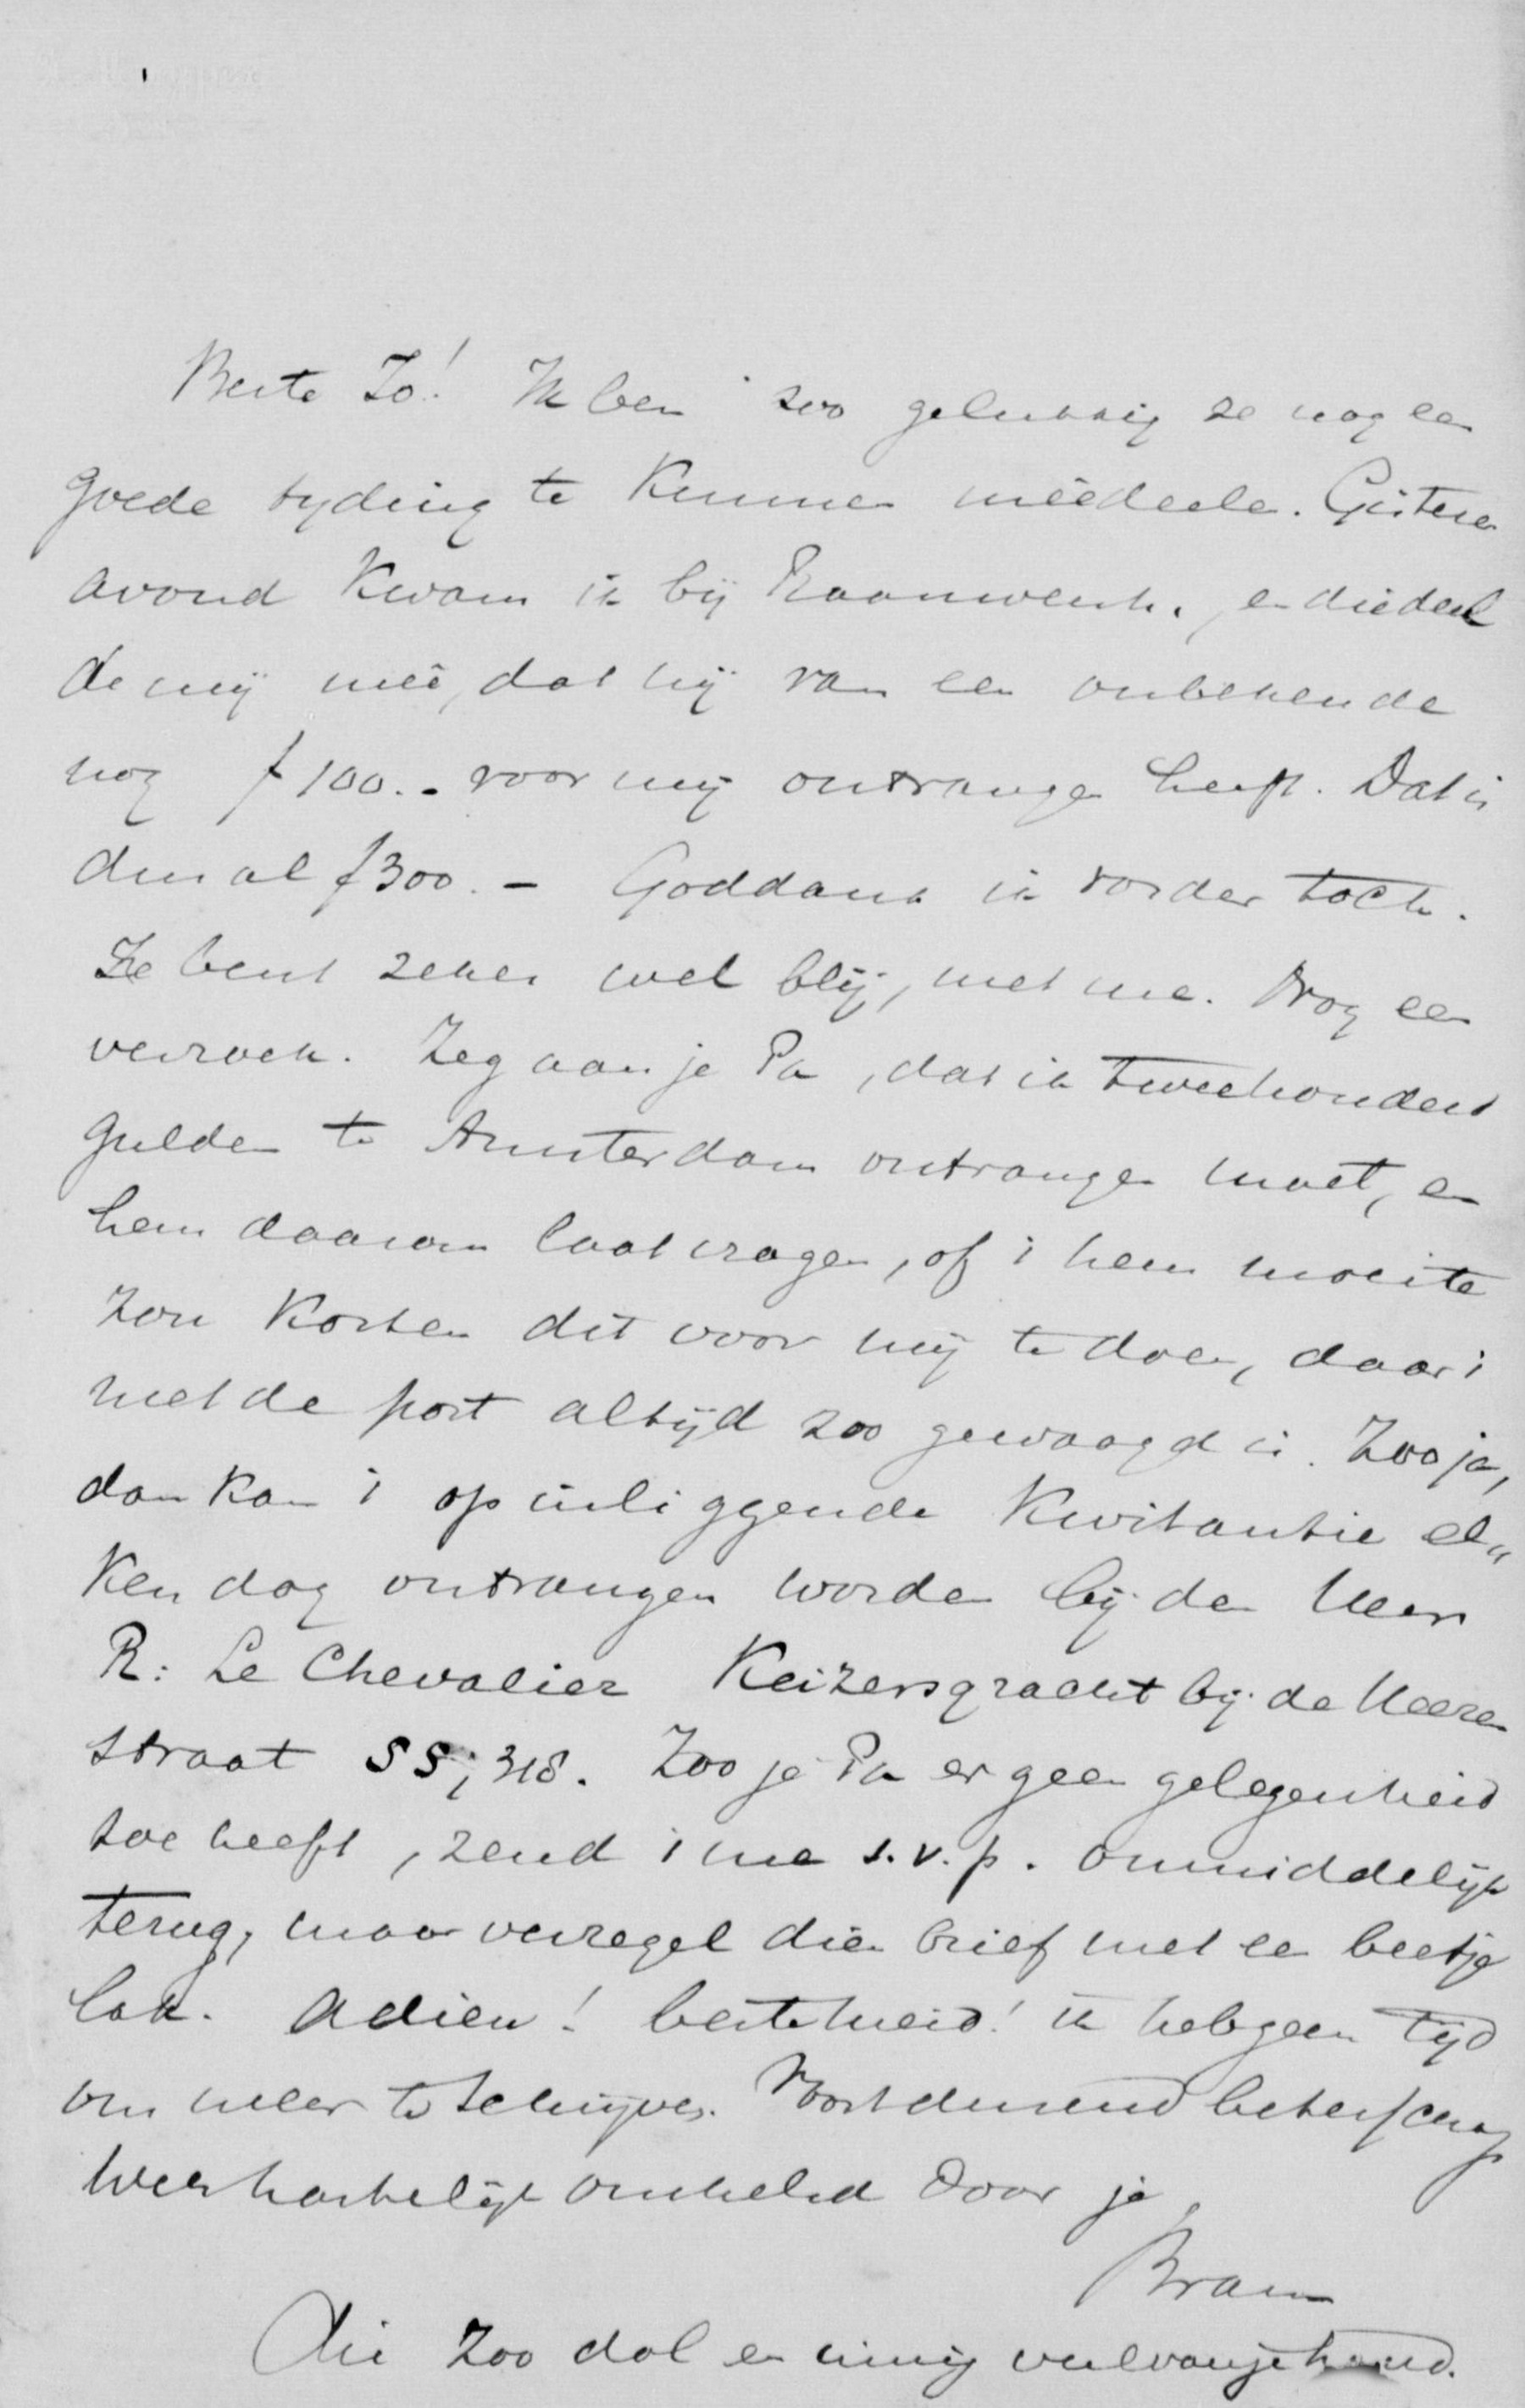 Beste Jo! Ik ben zoo gelukkig je nog een
goede tyding te kunnen mêedeelen. Gisteren
avond kwam ik bij Raauwenh., en die deel
de mij meê, dat hij van een onbekende
nog f 100.- voor mij ontvangen heeft. Dat is
dus al f 300.- Goddank ik vorder toch.
Je bent zeker wel blij, met me. Nog een
verzoek. Zeg aan je Pa, dat ik tweehonderd
gulden te Amsterdam ontvangen moet, en
hem daarom laat vragen, of 't hem moeite
zou kosten dit voor mij te doen, daar 't
met de post altijd zoo gewaagd is. Zoo ja,
dan kan 't op inliggende kwitantie el„
ken dag ontvangen worden bij den Heer
R: Le Chevalier Keizersgracht bij de Heeren
straat SS, 318. Zoo je Pa er geen gelegenheid
toe heeft, zend 't me s.v.p. onmiddelijk
terug, maar verzegel dien brief met een beetje
lak. Adieu! beste meid! ik heb geen tijd
om meer te schrijven. Voortdurend beterschap
Wees hartelijk omhelsd door je
Bram
die zoo dol en innig veel van je houd.